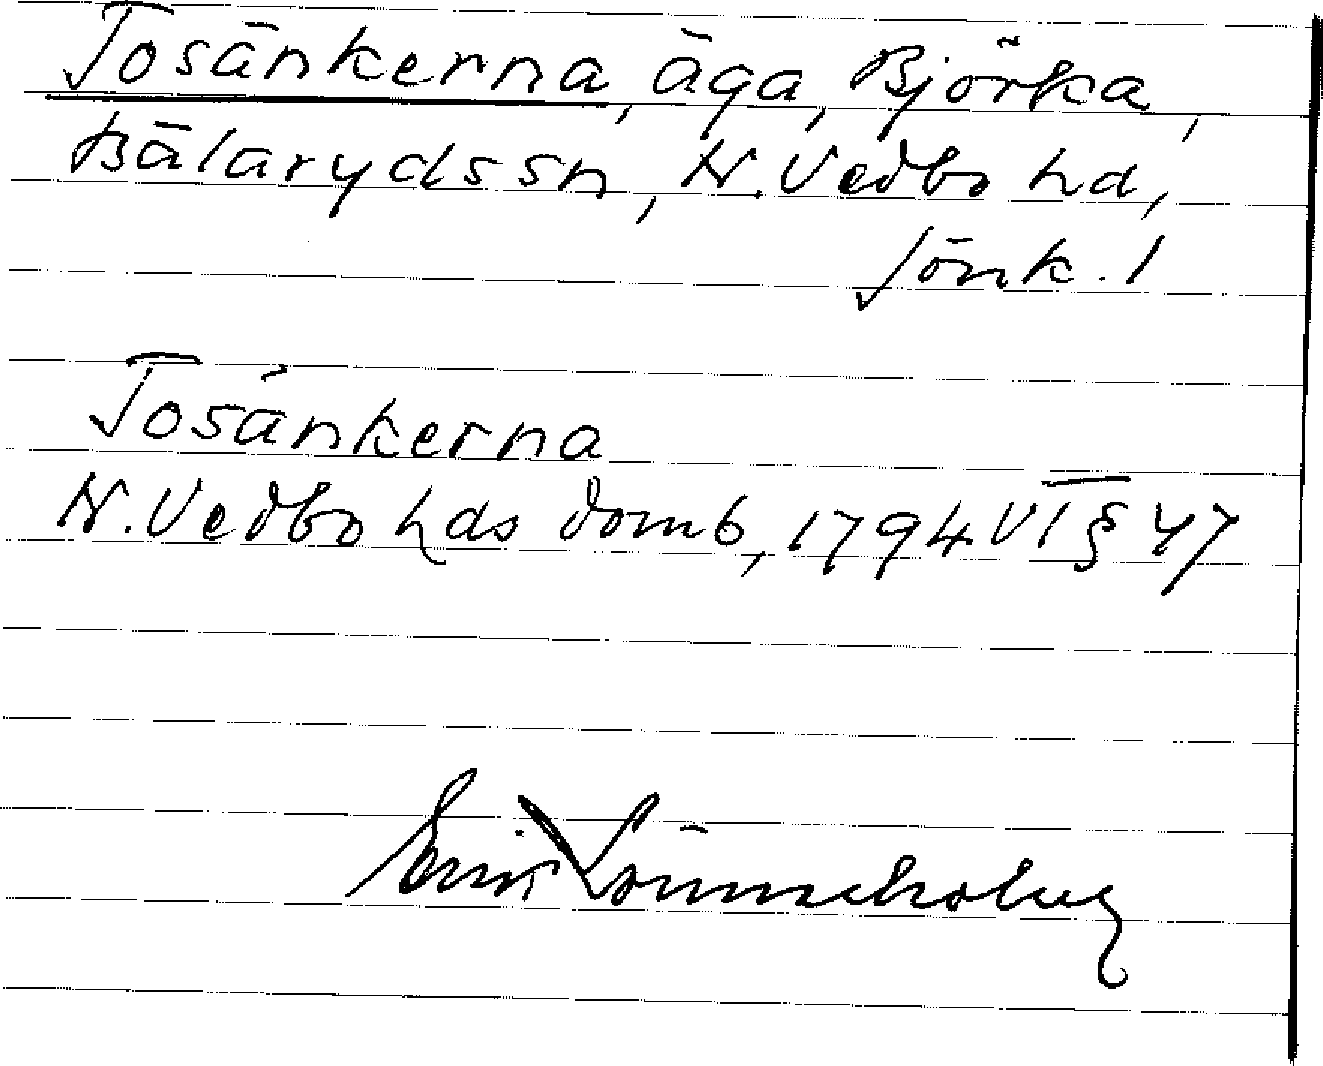 Tosänkerna, äga, Björka,
Bälaryds sn, N. Vedbo hd,
Jönk. l
Tosänkerna
N. Vedbo hds domb, 1794 VI § 47
Erik